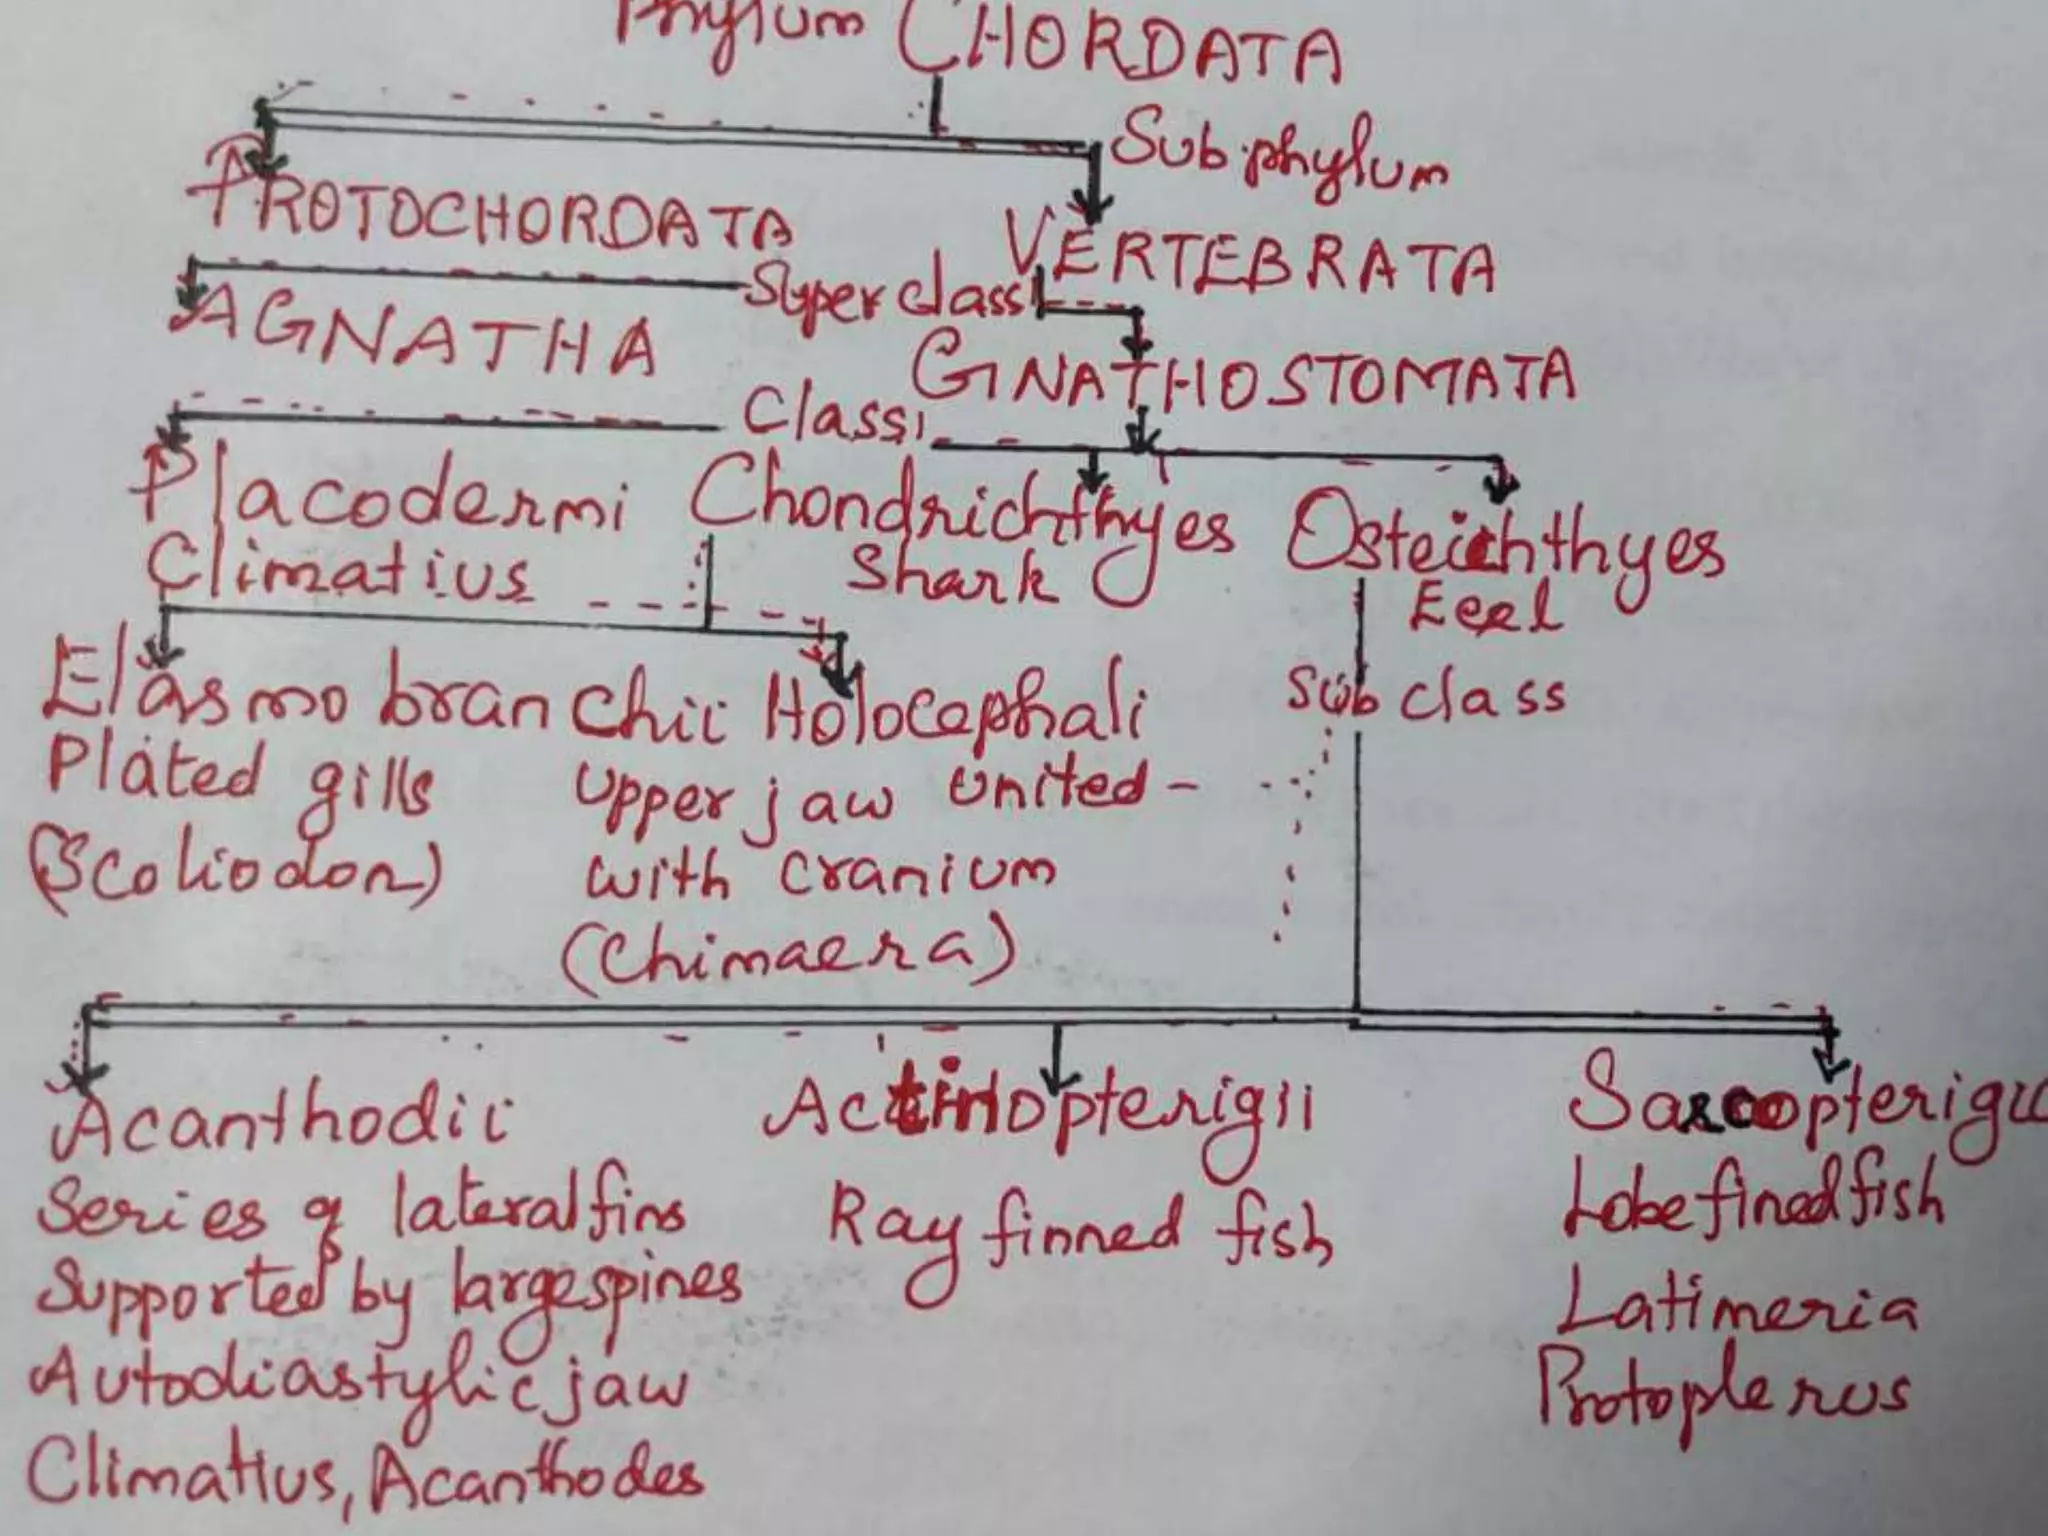 Phylum CHORDATA
Subphylum
PROTOCHORDATA VERTEBRATA
Super class
AGNATHA GNATHOSTOMATA
Class
Placodermi Chondrichthyes Osteichthyes
Climatius Shark Eeel
Elasmobranchii Holocephali Sub class
Plated gills Upper jaw united-
(Scoliodon) with cranium
(Chimaera)
Acanthodii Actinopterigii Sarcopterigii
Series of lateral fins Ray finned fish Lobe fined fish
Supported by large spines Latimeria
Autodiastylic jaw Protopterus
Climatius, Acanthodes